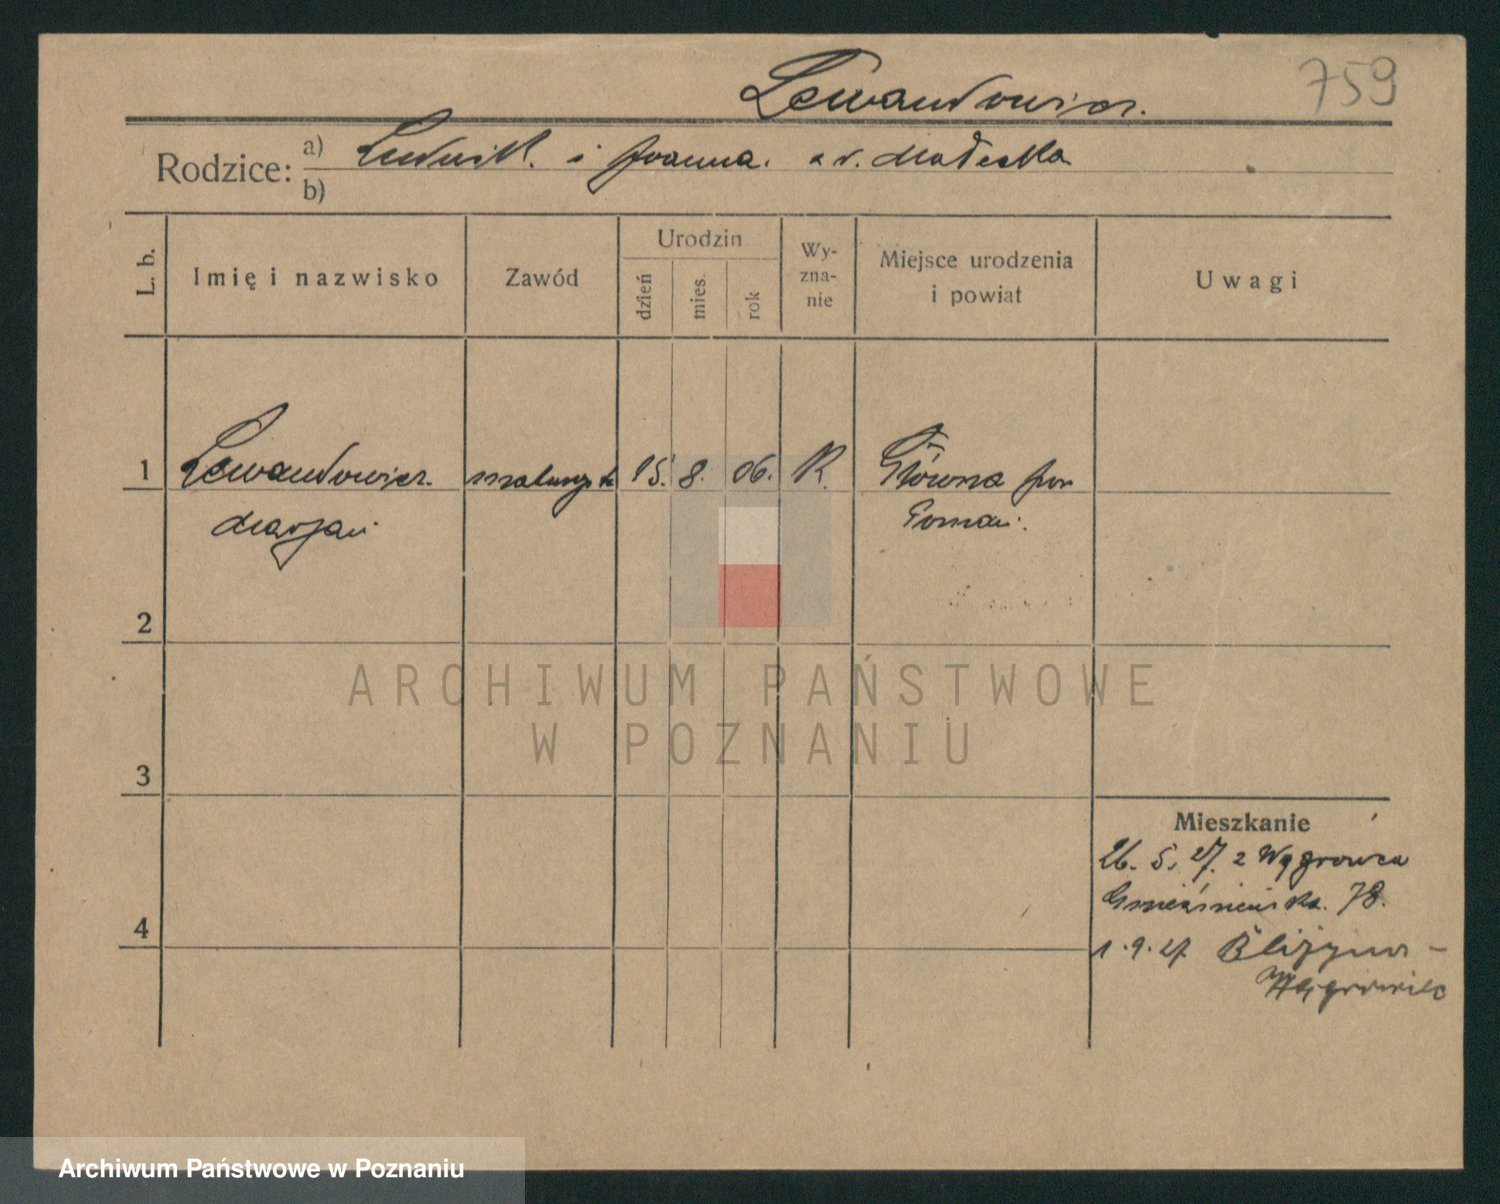 759
Lewandowicz.
Rodzice:
a) Ludwik. i Joanna. z d. Małecka
b)
L. b.
Imię i nazwisko
Zawód
Urodzin
dzień
mies.
rok
Wy-
zna-
nie
Miejsce urodzenia
i powiat
Uwagi
1 Lewandowicz. 15. 8. 06. R. Główna pow
Marjan Poznań.
2
3
4
Mieszkanie
26. 5. 27. z Wągrowca
Gnieźnieńska. 78.
1.9.27
Wągrowiec
ARCHIWUM PAŃSTWOWE
W POZNANIU
Archiwum Państwowe w Poznaniu